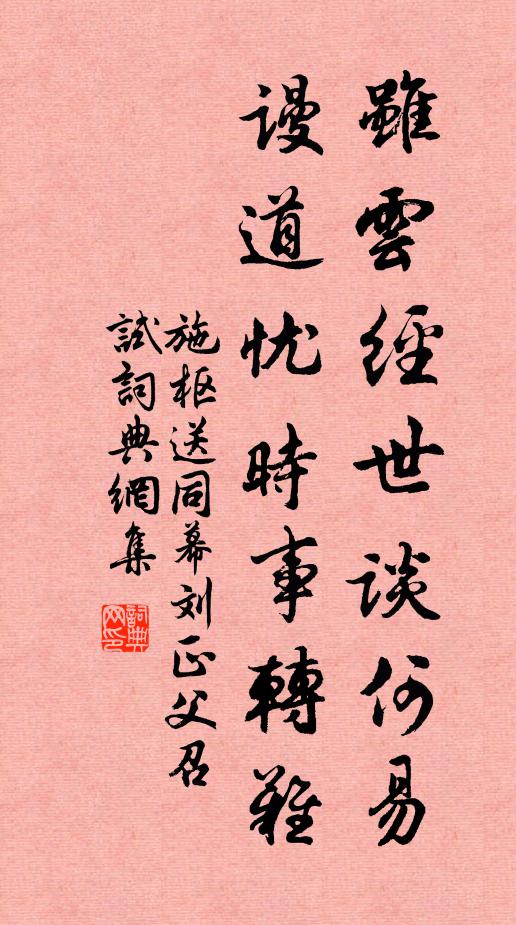 雖雲經世談何易
謾道忧時事轉難
施枢送同幕刘正父召
試詞典網集
詞典网印